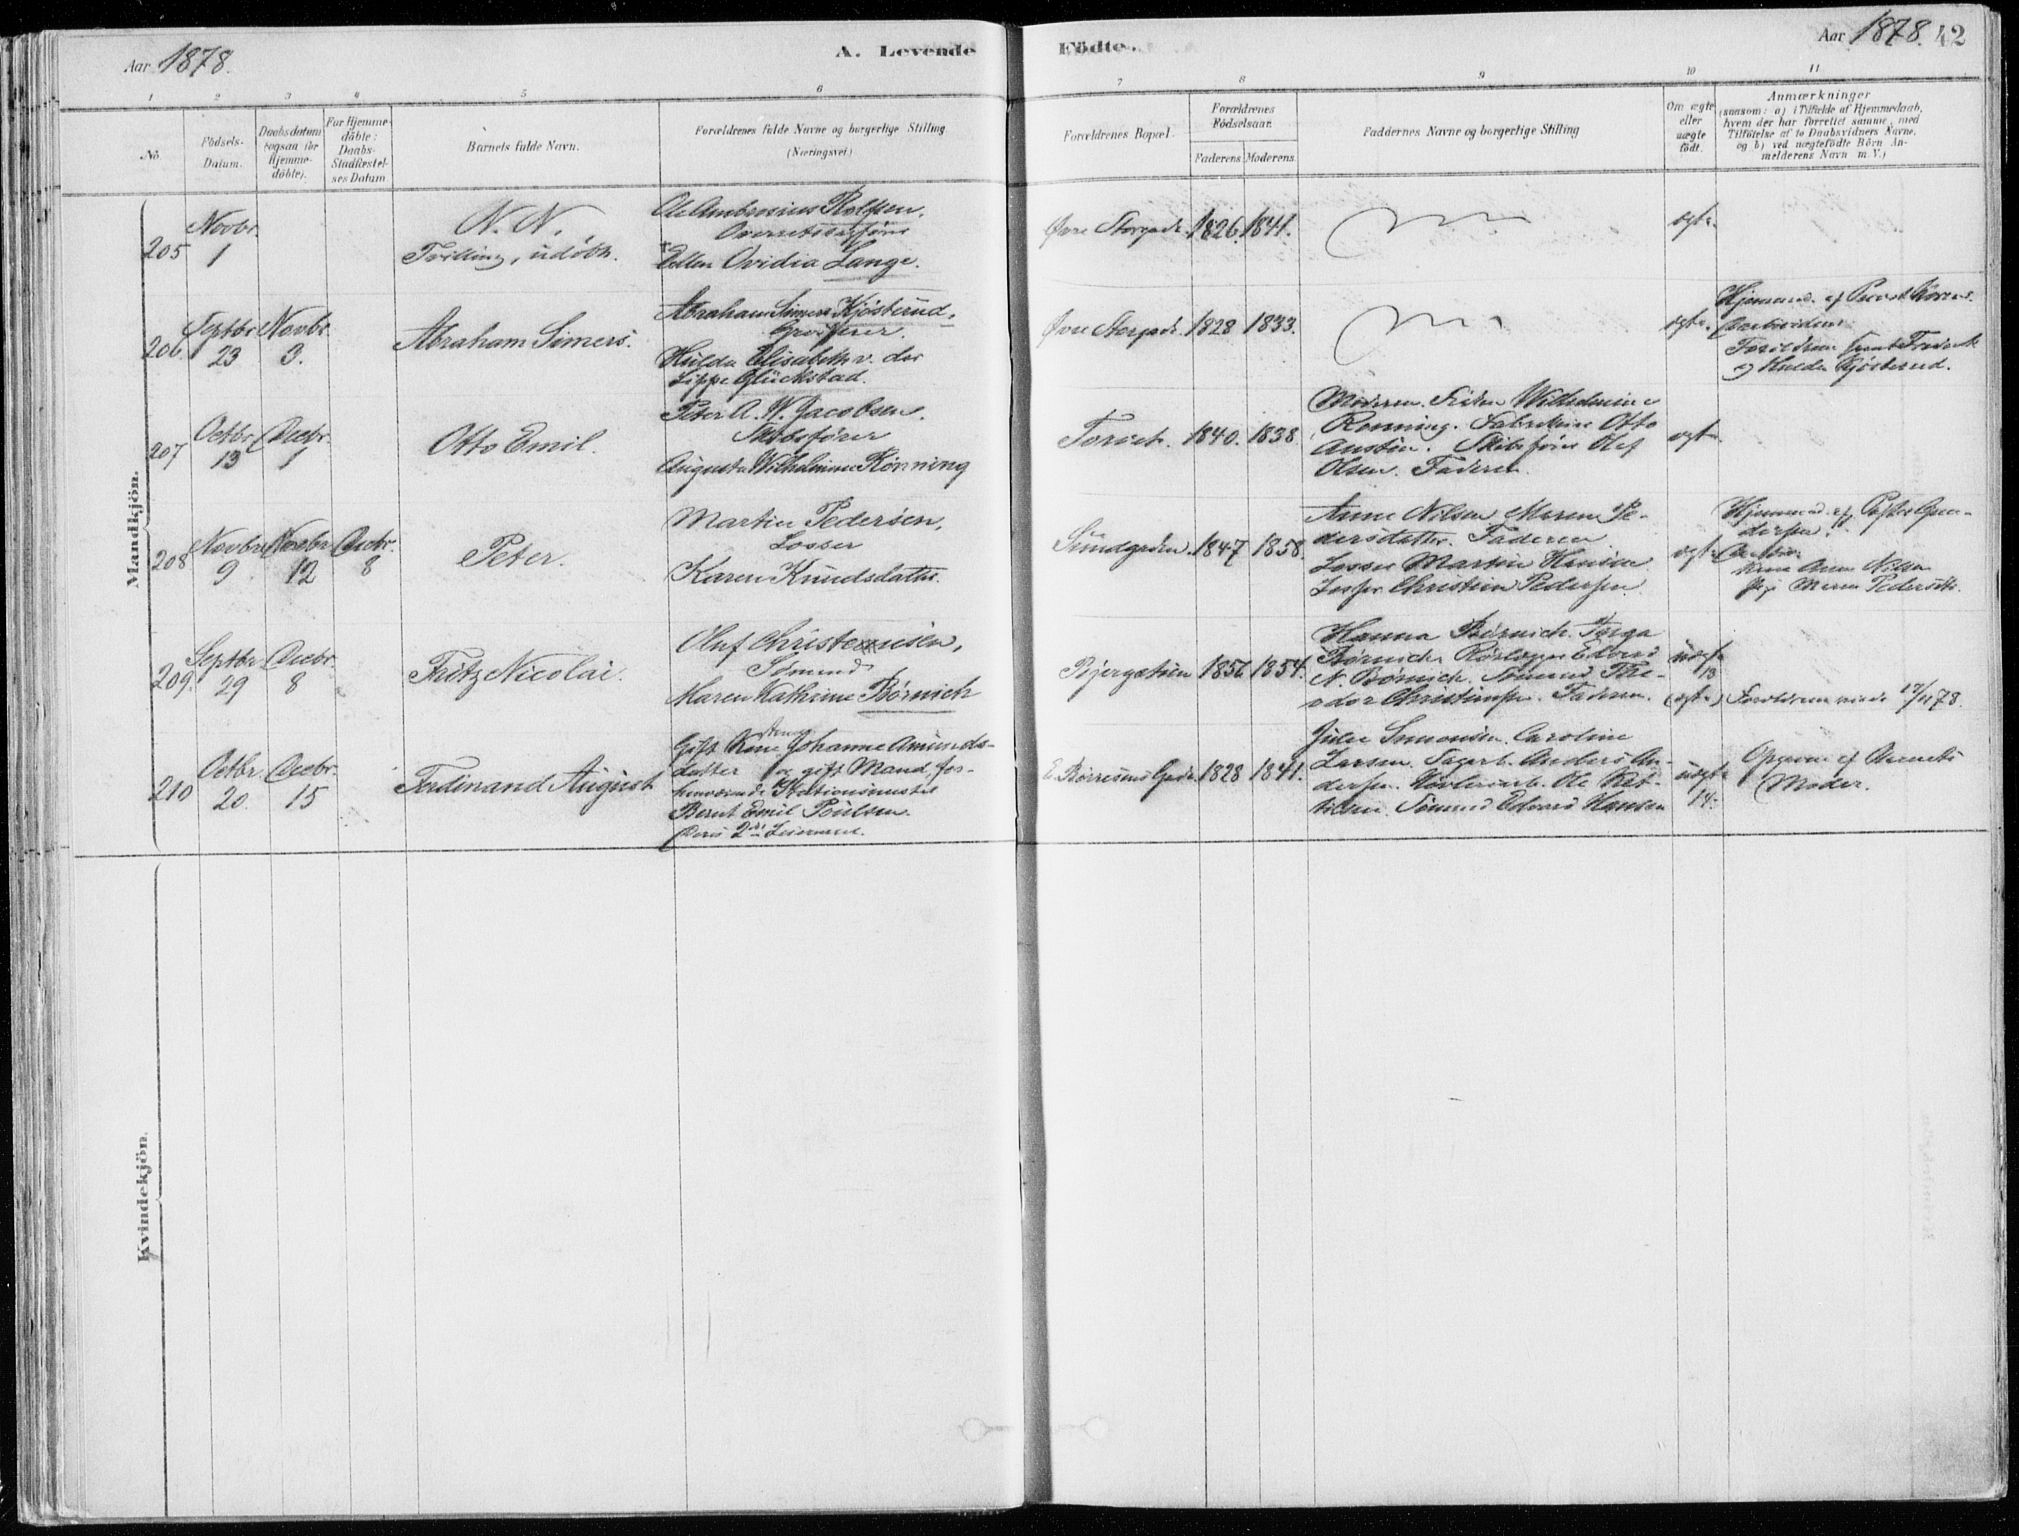 Aar 1878.
A. Levende
Födte.
Aar 1878. 42
1 2 3 4 5 6 7 8 9 10 11
No.
Födsels-
Datum.
Daabsdatum
(ogsaa for
Hjemme-
döbte).
For Hjemme-
döbte:
Daabs-
Stadfæstel-
ses Datum
Barnets fulde Navn.
Forældrenes fulde Navne og borgerlige Stilling
(Næringsvei.)
Forældrenes Bopæl.
Forældrenes
Födselsaar.
Faderens
Moderens.
Faddernes Navne og borgerlige Stilling
Om ægte
eller
uægte
födt.
Anmærkninger
(saasom: a) i Tilfælde af Hjemmedaab,
hvem der har forrettet samme, med
Tilföielse af to Daabsvidners Navne,
og b) ved uægtefödte Börn An-
melderens Navn m.V.)
Mandkjön.
205
Novbr.
1
N. N.
Tvilling, udöbt.
Ole Ambrosius Rolfsen,
Overretssagfører
Ellen Ovidia Lange.
Øvre Storgade. 1826. 1841.
ægte.
206.
Septbr
23
Novbr.
3.
Abraham Simers.
Abraham Simers Kjøsterud,
Grosserer.
Hulda Elisabeth v. der
Lippe Glückstad.
Øvre Storgade. 1828 1833.
ægte.
Hjemmed. af
Forældrene samt Frederik
og Hulda Kjøsterud.
207
Octbr
13
Decbr.
1
Otto Emil.
Peter A. W. Jacobsen.
Skibsfører
Augusta Wilhelmine Rönning
1840. 1838
Moderen. Wilhelmine
Rönning. Otto
Austin. Skibsfører Olaf
Olsen. Faderen.
ægte
208
Novbr
9
Novbr
12
Decbr.
8
Peter.
Martin Pedersen,
Losser
Karen Knudsdatter.
Sundgaden. 1847 1858.
Anne Nilsen Maren Pe-
dersdatter. Faderen
Losser Martin Hansen
Losser Christian Pedersen.
ægte
Hjemmed. af Pastor Gun-
dersen.
Anne Nilsen
Pige Maren Pedersdtr.
209.
Septbr
29
Decbr.
8
Fritz Nicolai.
Oluf Christensen,
Sömand
Maren Kathrine Börnich
1856 1854.
Hanna Börnich.
Börnich Edvard
N. Börnich. Sömand The-
odor Christensen. Faderen.
uægte
13
(ægte)
Forældrene viede 17/11 78.
210
Octbr.
20
Decbr.
15
Ferdinand August
Gift Kone Johanne Amunds-
datter og gift Mand, for-
henværende Stationsmester
Bernt Emil Poulsen.
Deres 2det Leiermaal.
1828 1841.
Julie Simonsen. Caroline
Larsen. Anders An-
dersen. Ole Ket-
tilsen. Sömand Edvard Hansen
uægte
14.
Opgivne af Barnets
Moder.
Kvindekjön.